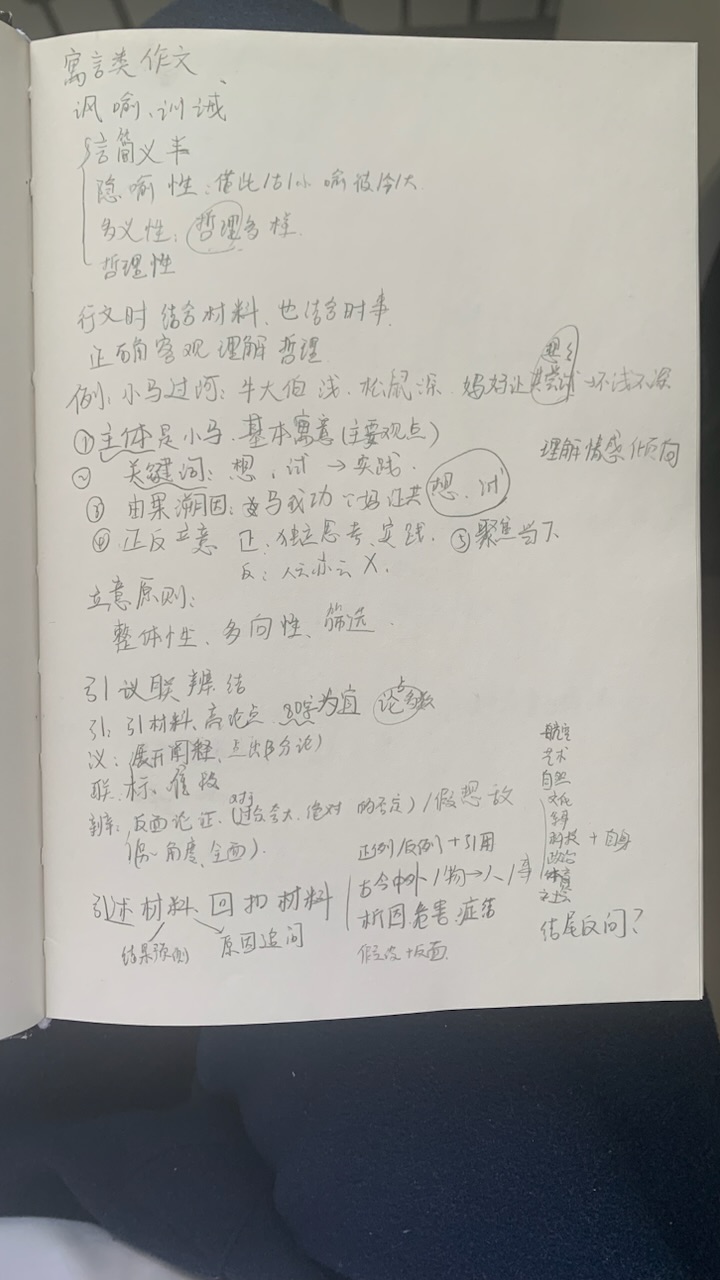 寓言类作文
讽喻、训诫
言简义丰
隐喻性：借此/古/小 喻彼/今/大
多义性：哲理多样
哲理性
行文时结合材料、也结合时事
正确客观理解哲理
想
例：小马过河：牛大伯浅、松鼠深、妈妈让其尝试→不浅不深
①主体是小马、基本寓意（主要观点）
理解情感倾向
② 关键词：想、试→实践
③ 由果溯因：小马成功 妈让其想、试
④ 正反立意 正：独立思考、实践 ⑤聚焦当下
反：人云亦云 X.
立意原则：
整体性、多向性、筛选
引议联辨结
引：引材料、高论点 80字为宜 论点
议：展开阐释、点出部分论
联
辨：反面论证（过分夸大、绝对的否定）/假想敌
（角度、全面）.
正例/反例+引用
引述材料、回扣材料
结果预测 原因追问
古今中外/物→人/事
析因、危害、症结
假设+反面
航空
艺术
自然
文化
科技 + 自身
政治
体育
结尾反问？